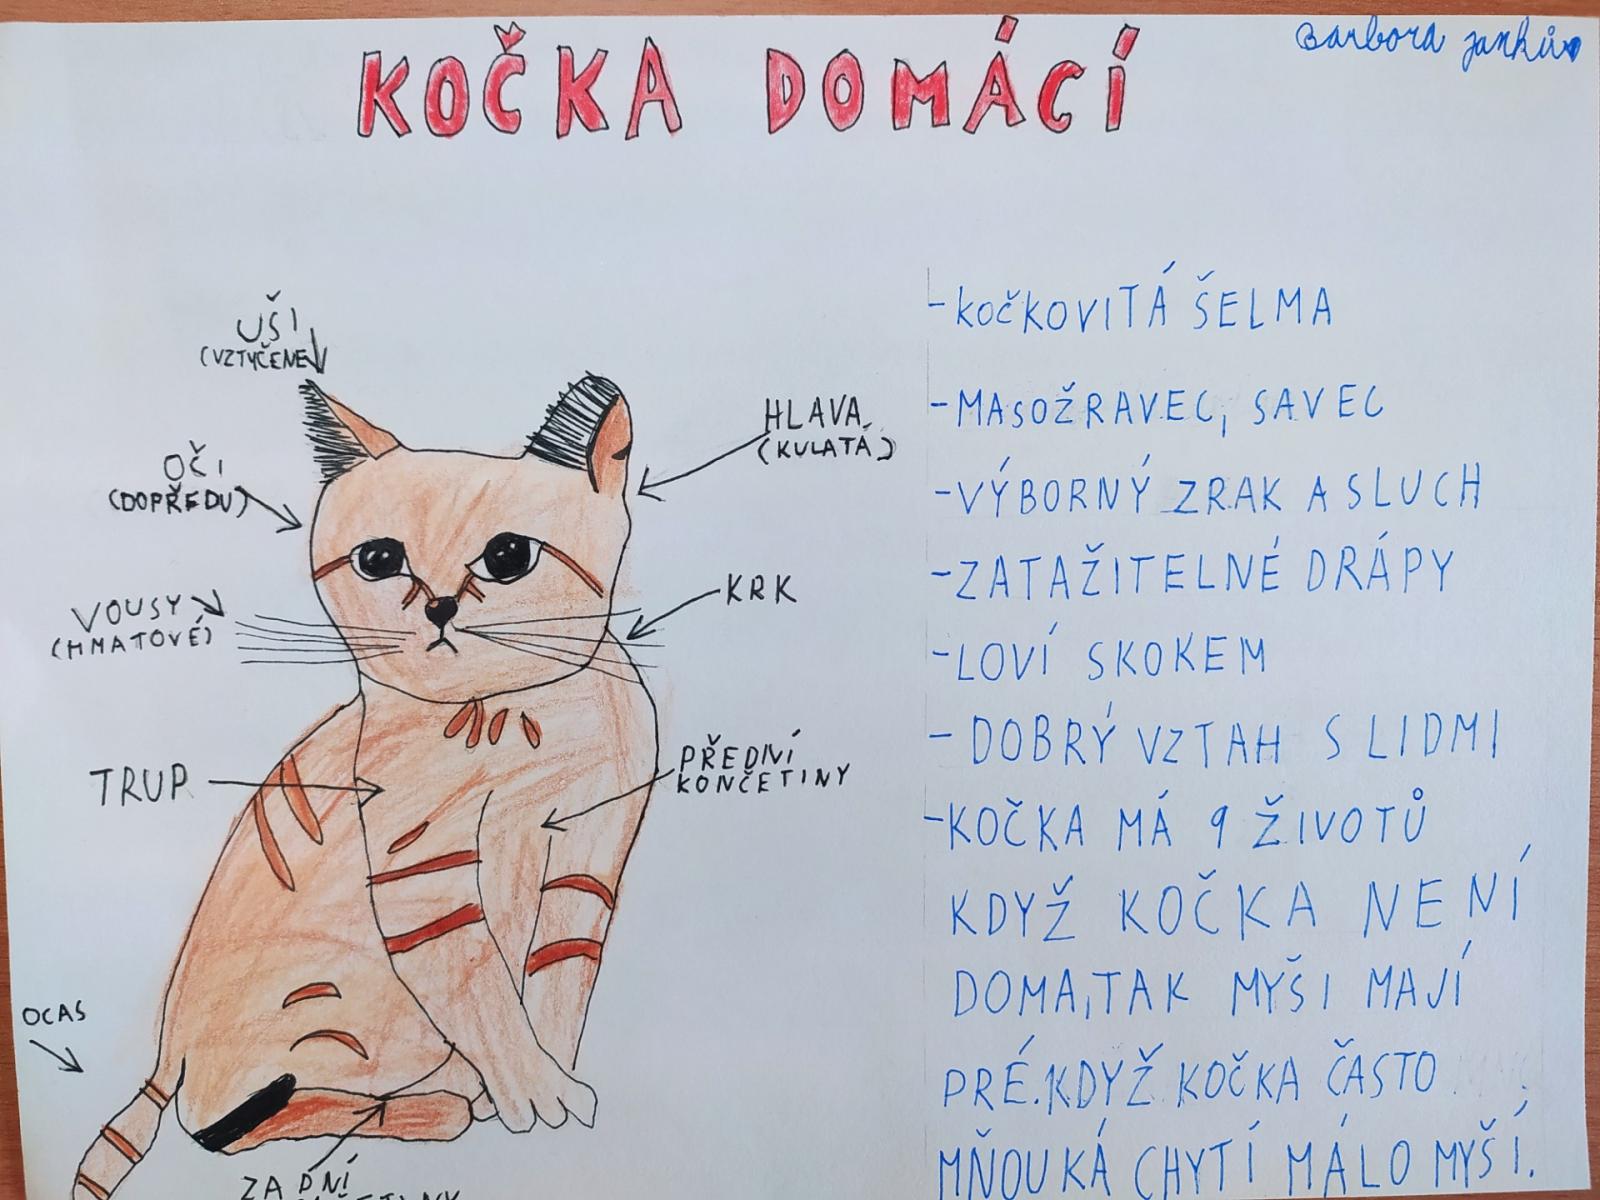 Barbora Janků
KOČKA DOMÁCÍ
UŠI
(VZTYČENE
OČI
(DOPŘEDU)
VOUSY
(HMATOVÉ)
TRUP
OCAS
ZADNÍ
HLAVA
(KULATÁ)
KRK
PŘEDNÍ
KONČETINY
-KOČKOVITÁ ŠELMA
-MASOŽRAVEC, SAVEC
-VÝBORNÝ ZRAK A SLUCH
-ZATAŽITELNÉ DRÁPY
-LOVÍ SKOKEM
- DOBRÝ VZTAH S LIDMI
-KOČKA MÁ 9 ŽIVOTŮ
KDYŽ KOČKA NENÍ
DOMA,TAK MYŠI MAJÍ
PRÉ.KDYŽ KOČKA ČASTO
MŇOUKÁ CHYTÍ MÁLO MYŠÍ.